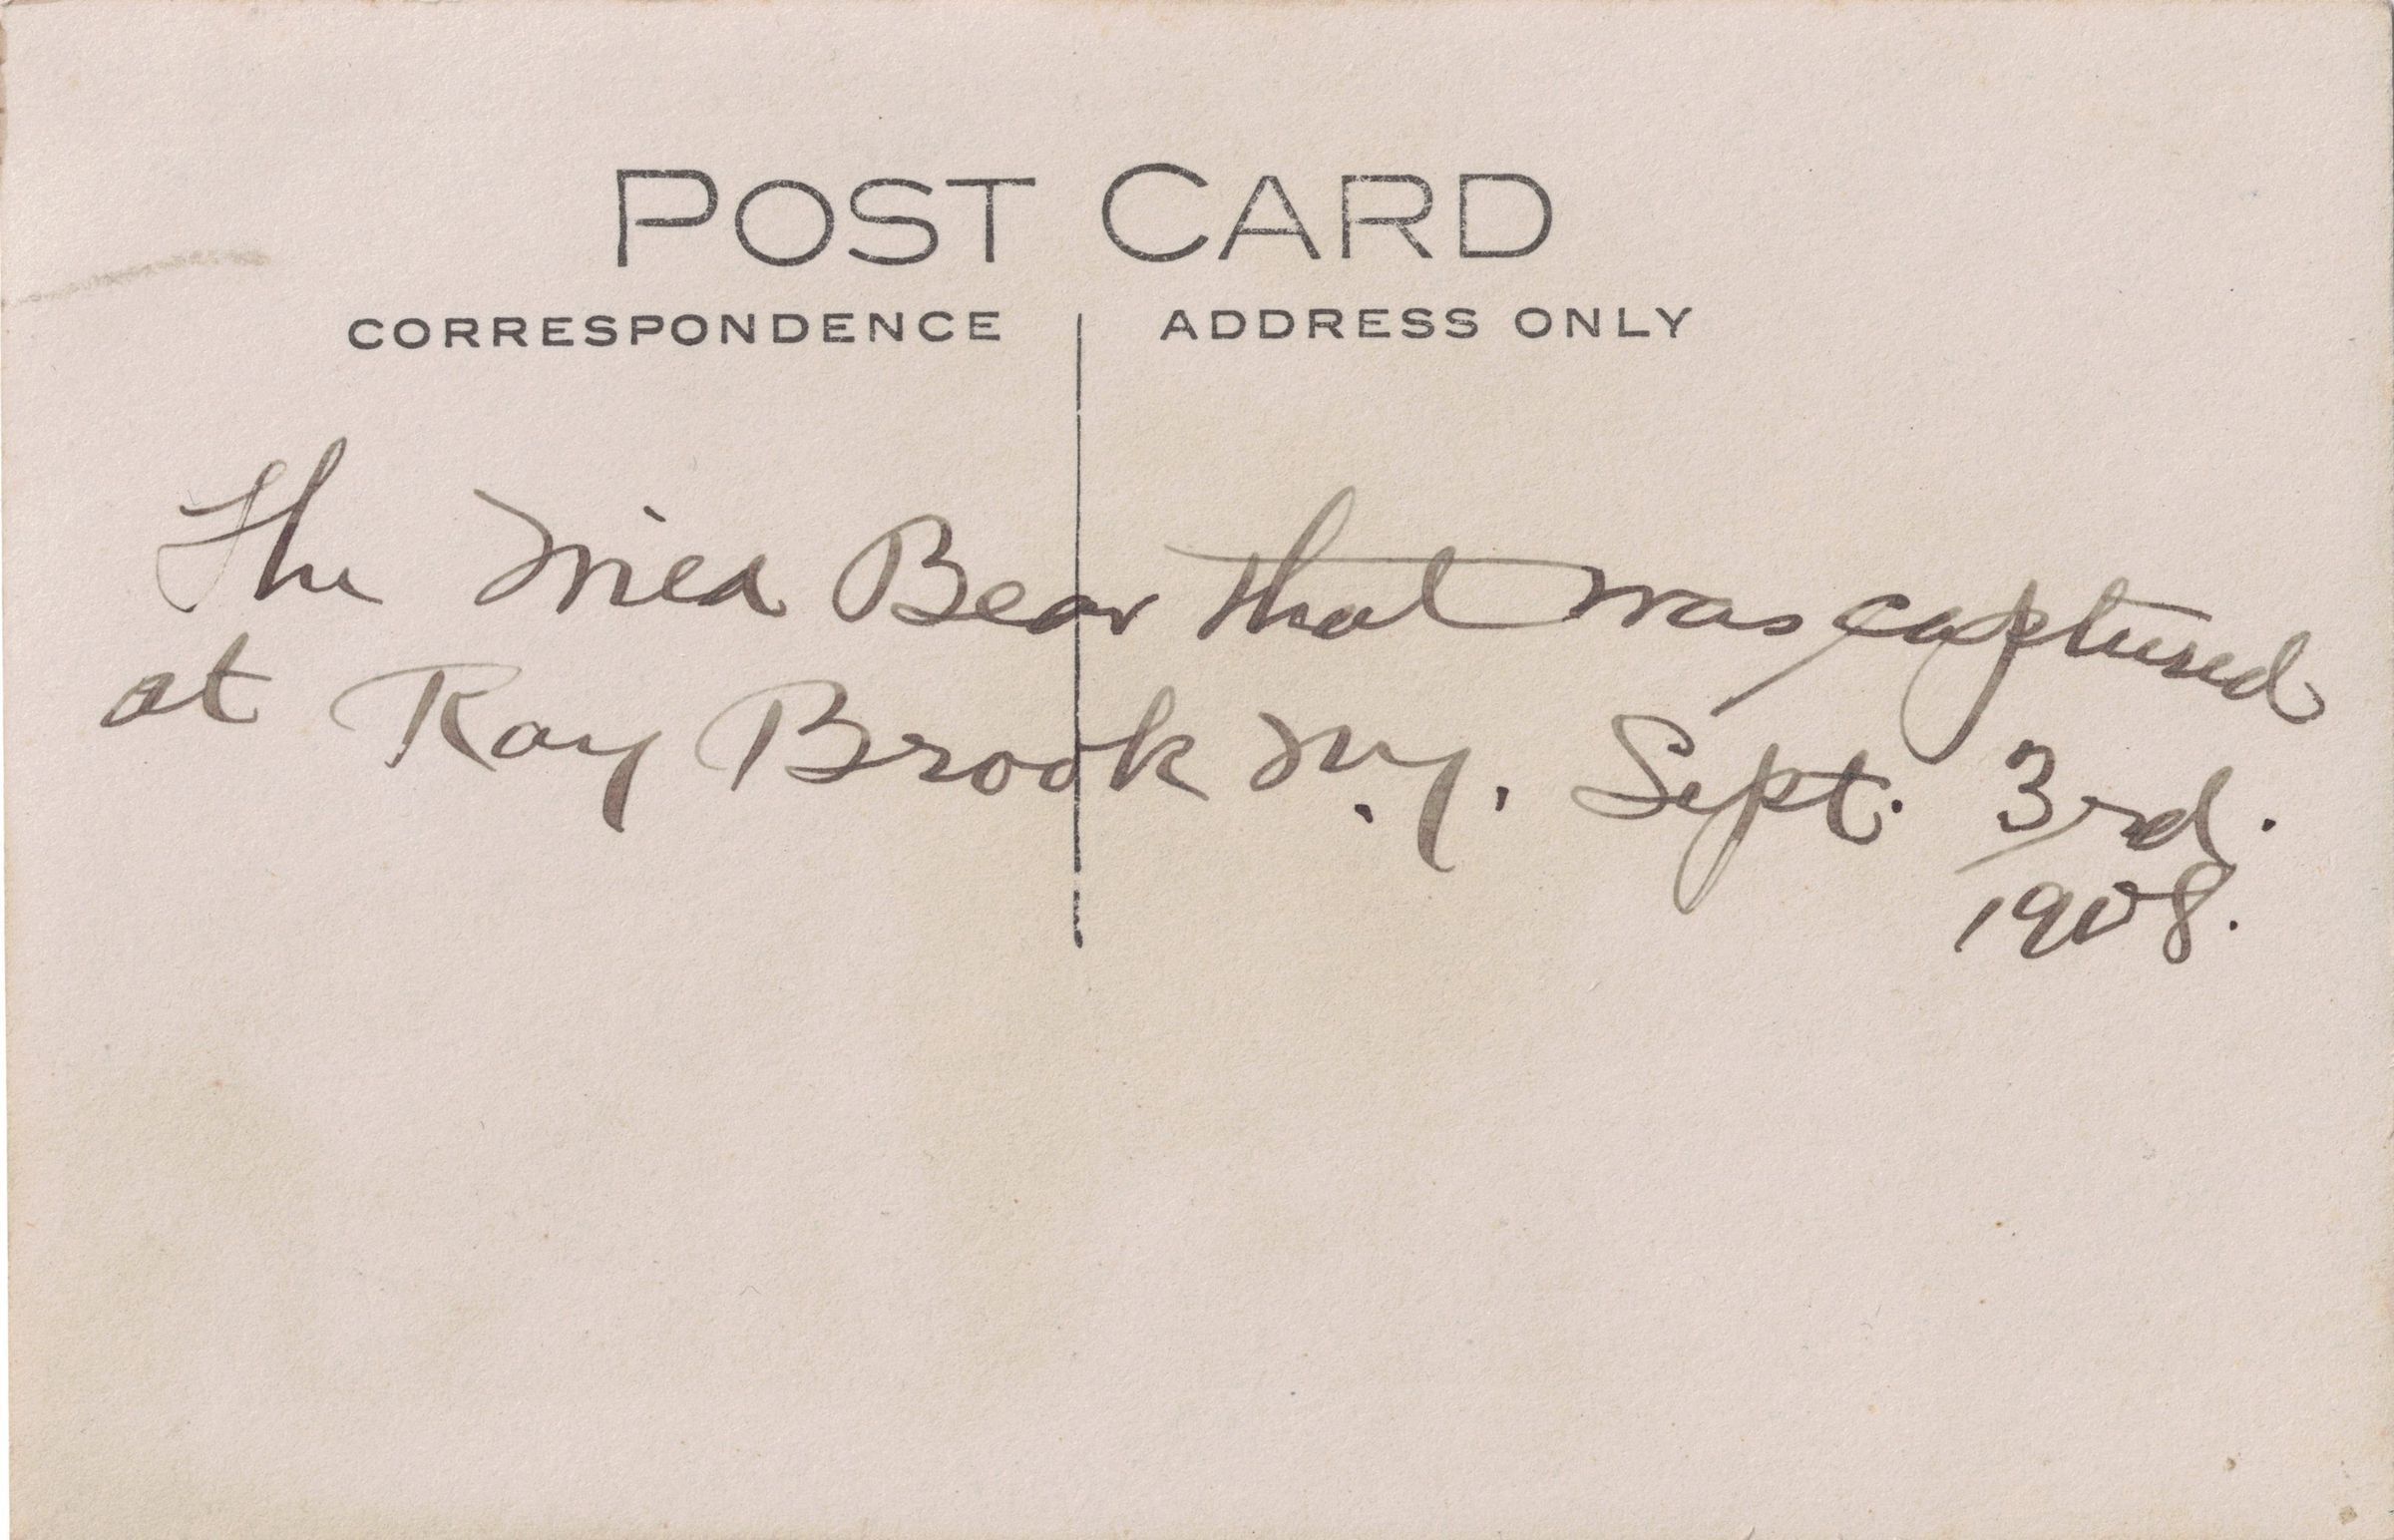 POST CARD
CORRESPONDENCE
ADDRESS ONLY
The Bear that was captured
at Ray Brook N.Y. Sept. 3rd.
1908.